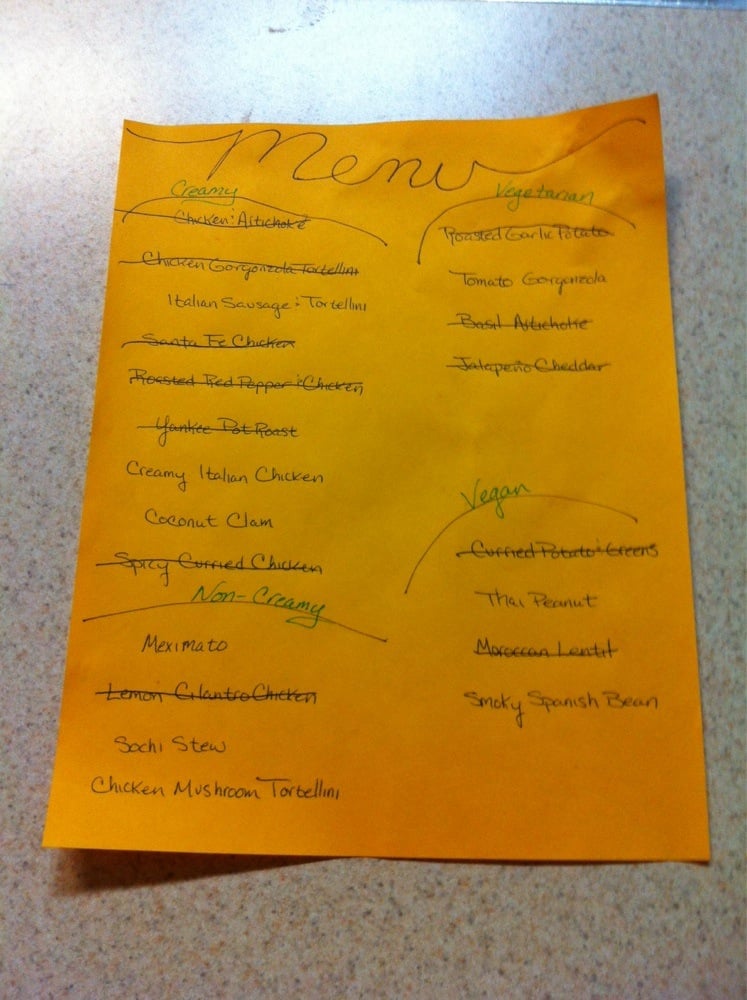 Menu
Creamy
Chicken & Artichoke
Chicken Gorgonzola Tortellini
Italian Sausage & Tortellini
Santa Fe Chicken
Roasted Red Pepper & Chicken
Yankee Pot Roast
Creamy Italian Chicken
Coconut Clam
Spicy Curried Chicken
Non-Creamy
Meximato
Lemon Cilantro Chicken
Sochi Stew
Chicken Mushroom Tortellini
Vegetarian
Roasted Garlic Potato
Tomato Gorgonzola
Basil Artichoke
Jalapeño Cheddar
Vegan
Curried Potato & Greens
Thai Peanut
Moroccan Lentil
Smoky Spanish Bean